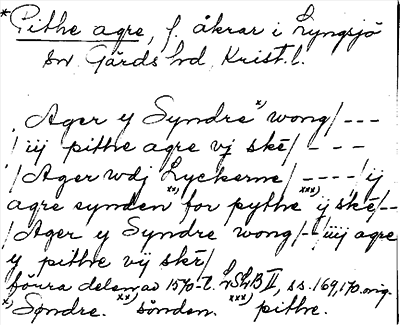 *Pithe agre, f. åkrar i Lyngsjö
sn Gärds hd, Krist. l.
Ager y Syndre x) wong/---
/iij pithe agre vj skē/ - - -
/Ager wdj Lyckerne/ ---- /ij
agre synden xx) for pythe xxx) ij skē/--
/Ager y Syndre wong/--/iiij agre
y pithe vij skē/
förra delen av 1570-t. LSLB II, ss. 169, 170. orig.
x) Søndre. xx) sönden. xxx) pithe.